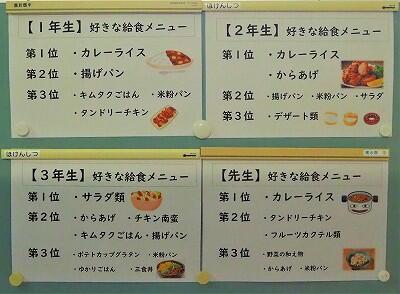 【1年生】好きな給食メニュー
第1位 ・カレーライス
第2位 ・揚げパン
第3位 ・キムタクごはん ・米粉パン
・タンドリーチキン
ほけんしつ
【2年生】好きな給食メニュー
第1位 ・カレーライス
・からあげ
第2位 ・揚げパン ・米粉パン ・サラダ
第3位 ・デザート類
ほけんしつ
【3年生】好きな給食メニュー
第1位 ・サラダ類
第2位 ・からあげ ・チキン南蛮
・キムタクごはん・揚げパン
第3位 ・ポテトカップグラタン ・米粉パン
・ゆかりごはん ・三食丼
【先生】好きな給食メニュー
第1位 ・カレーライス
第2位 ・タンドリーチキン
・フルーツカクテル類
第3位 ・野菜の和え物
・からあげ ・米粉パン